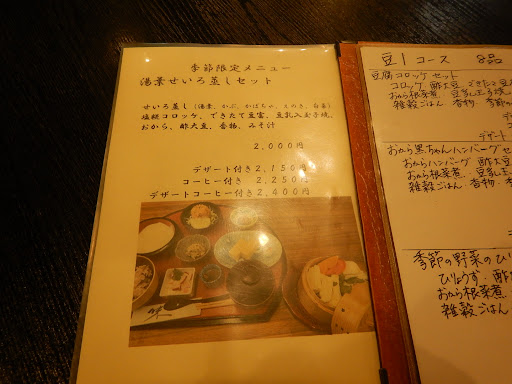 季節限定メニュー
湯葉せいろ蒸しセット
せいろ蒸し(湯葉、かぶ、かぼちゃ、えのき、白菜)
塩糀コロッケ、できたて豆富、豆乳入玉子焼、
おから、酢大豆、香物、みそ汁
2,000円
デザート付き2,150円
コーヒー付き 2,250円
デザートコーヒー付き2,400円
豆1コース 8品
豆腐コロッケセット
コロッケ 酢大豆 できたて豆
おから根菜煮 豆乳玉子焼
雑穀ごはん 香物 季節の
デザート
おから黒ちゃんハンバーグセ
おからハンバーグ 酢大豆
おから根菜煮・豆乳玉
雑穀ごはん・香物・季
季節の野菜のひ
ひりょうず・酢
おから根菜煮
雑穀ごはん